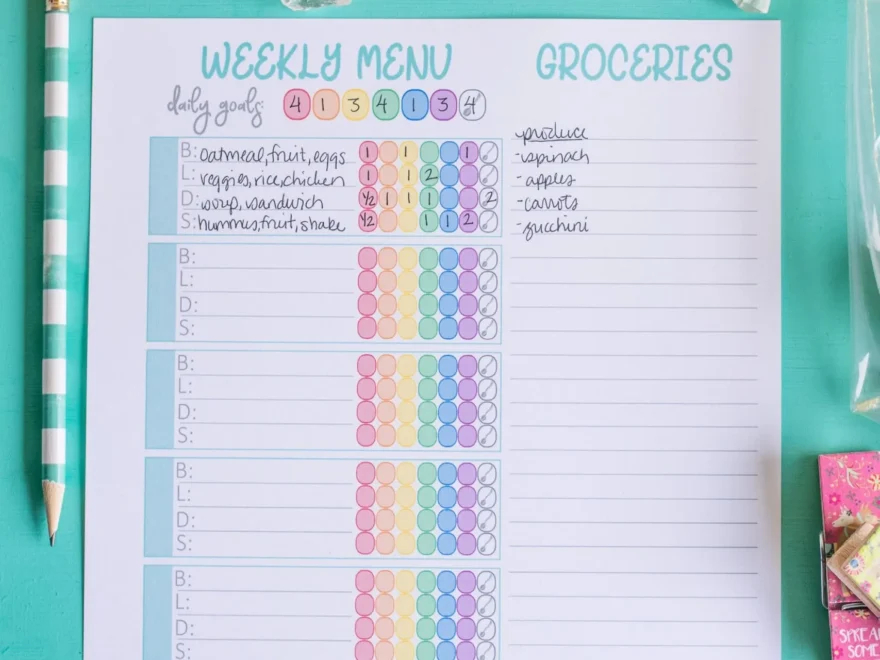 WEEKLY MENU
daily goals: 4 1 3 4 1 3 4
B: oatmeal, fruit, eggs 1 1 1
L: veggies, rice, chicken 1 1 2
D: soup, sandwich 1/2 1 1 1 2
S: hummus, fruit, shake 1/2 1 1 2
B:
L:
D:
S:
B:
L:
D:
S:
B:
L:
D:
S:
B:
L:
D:
S:
GROCERIES
produce
-spinach
-apples
-carrots
-zucchini
SPREAD
SOME